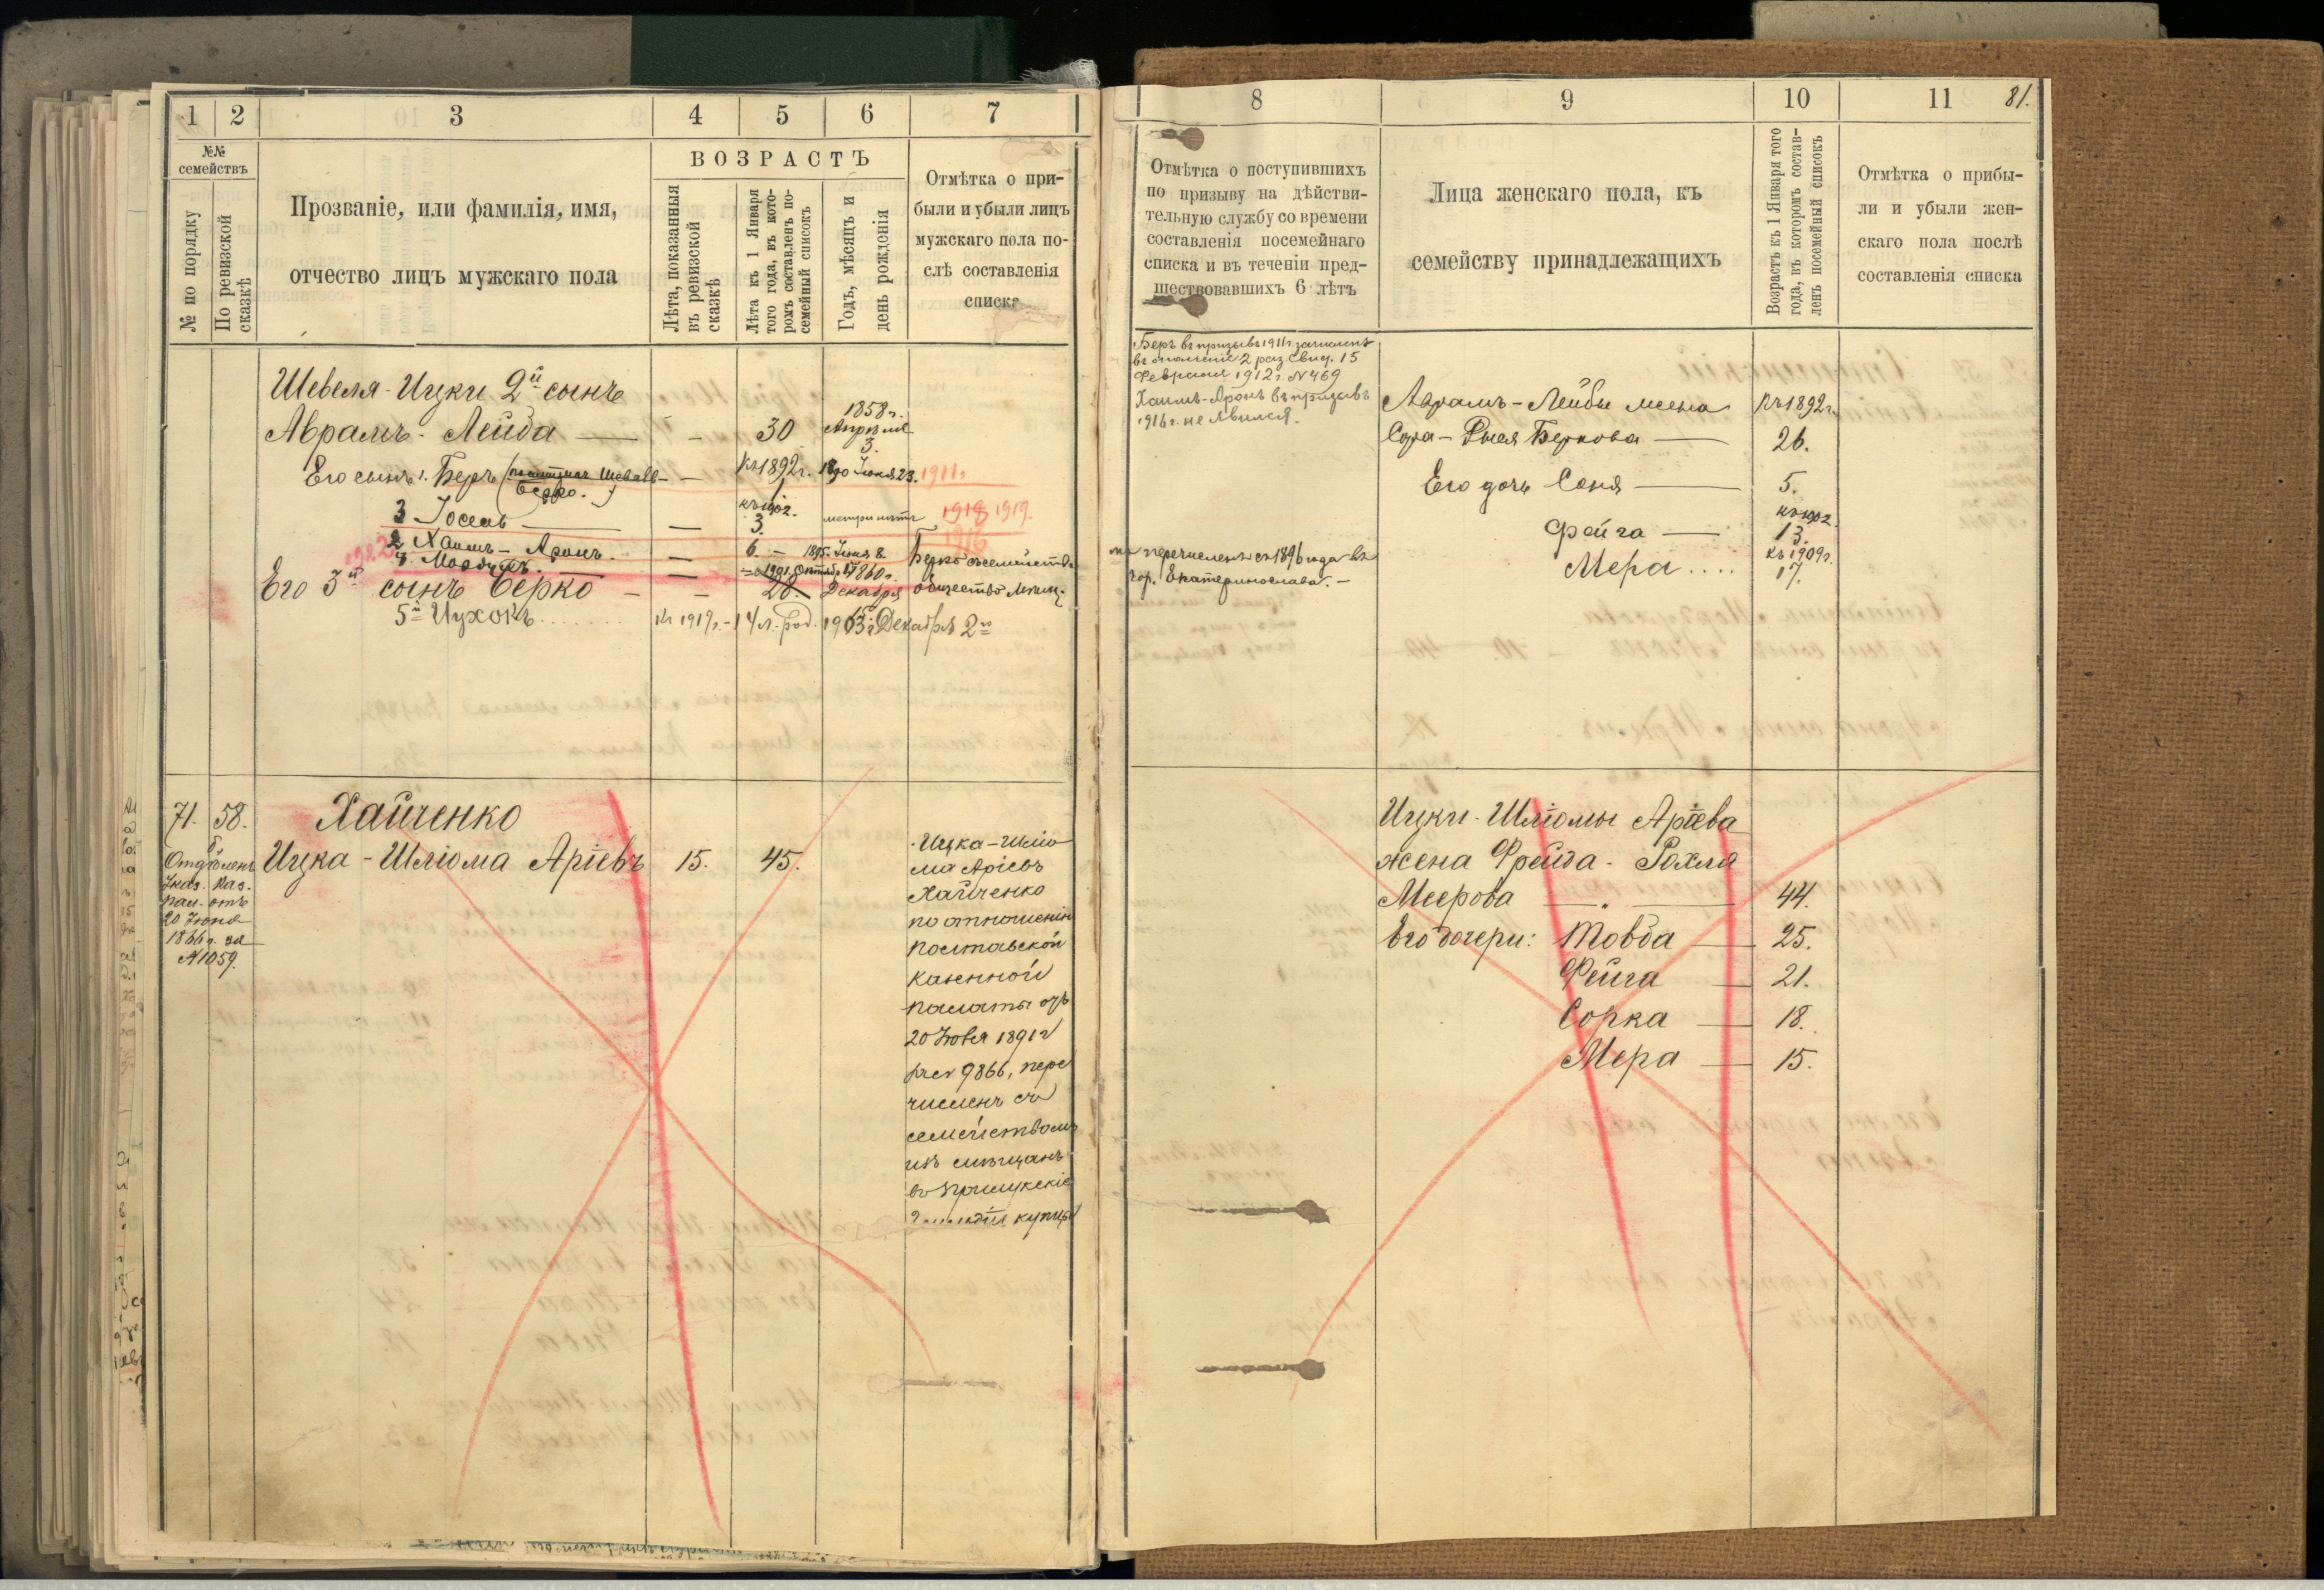 1 2 3 4 5 6 7
№№ семействъ
№ по порядку
По ревизской сказкѣ
Прозваніе, или фамилія, имя,
отчество лицъ мужскаго пола
ВОЗРАСТЪ
Лѣта, показанныя
въ ревизской
сказкѣ
Лѣта къ 1 Января
того года, въ кото-
ромъ составленъ по-
семейный списокъ
Годъ, мѣсяцъ и
день рожденія
Отмѣтка о при-
были и убыли лицъ
мужскаго пола по-
слѣ составленія
списка
Шевеля-Ицки 2й сынъ
Аврамъ-Лейба — - 30 1858 г. Апрѣля 3.
Его сынъ 1. Беръ - къ 1892 г. 1890 Іюня 23. 1911 г.
Берко.
3 Іосель — къ 1902. 3. 1918 1919.
2 Хаимъ-Аронъ. — 6. - 1895. Іюня 8. 1916
1922 4. Мордухъ.
Его 3й сынъ Берко - - 28. 1860 г. Декабря 15 Берко съ семействомъ
5й Ицхокъ....... къ 1919 г. - 14 л. род. 1905 г. Декабря 2го
71. 58.
Хайченко
Отдѣленъ
Указ. Каз.
Пал. отъ
20 Іюня
1866 г. за
№1059.
Ицка-Шліома Аріевъ 15. 45.
Ицка-Шліо
ма Аріевъ
Хайченко
по отношенію
Полтавской
Казенной
Палаты отъ
20 Іюня 1891 г
за № 9866, пере
численъ съ
семействомъ
изъ мѣщанъ
въ Прилукскіе
2 гильдіи купцы
8 9 10 11 81.
Отмѣтка о поступившихъ
по призыву на дѣйстви-
тельную службу со времени
составленія посемейнаго
списка и въ теченіи пред-
шествовавшихъ 6 лѣтъ
Лица женскаго пола, къ
семейству принадлежащихъ
Возрастъ къ 1 Января того
года, въ которомъ состав-
ленъ посемейный списокъ
Отмѣтка о прибы-
ли и убыли жен-
скаго пола послѣ
составленія списка
Беръ въ призывъ 1911 г. зачисленъ
въ ополченіе 2 раз. Свид. 15
Февраля 1912 г. №469
Хаимъ-Аронъ въ призывъ
1916 г. не явился.
Аврамъ-Лейбы жена къ 1892 г.
Сора-Рися Беркова — 26.
Его дочь Соня — 5.
къ 1902
Фейга — 13.
къ 1909 г.
Мера.... 17.
перечисленъ съ 1896 года въ
гор. Екатеринославъ. -
Ицки-Шліомы Аріева
жена Фрейда-Рохля
Меерова — 44.
Его дочери: Товба — 25.
Фейга — 21.
Сорка — 18.
Мера — 15.